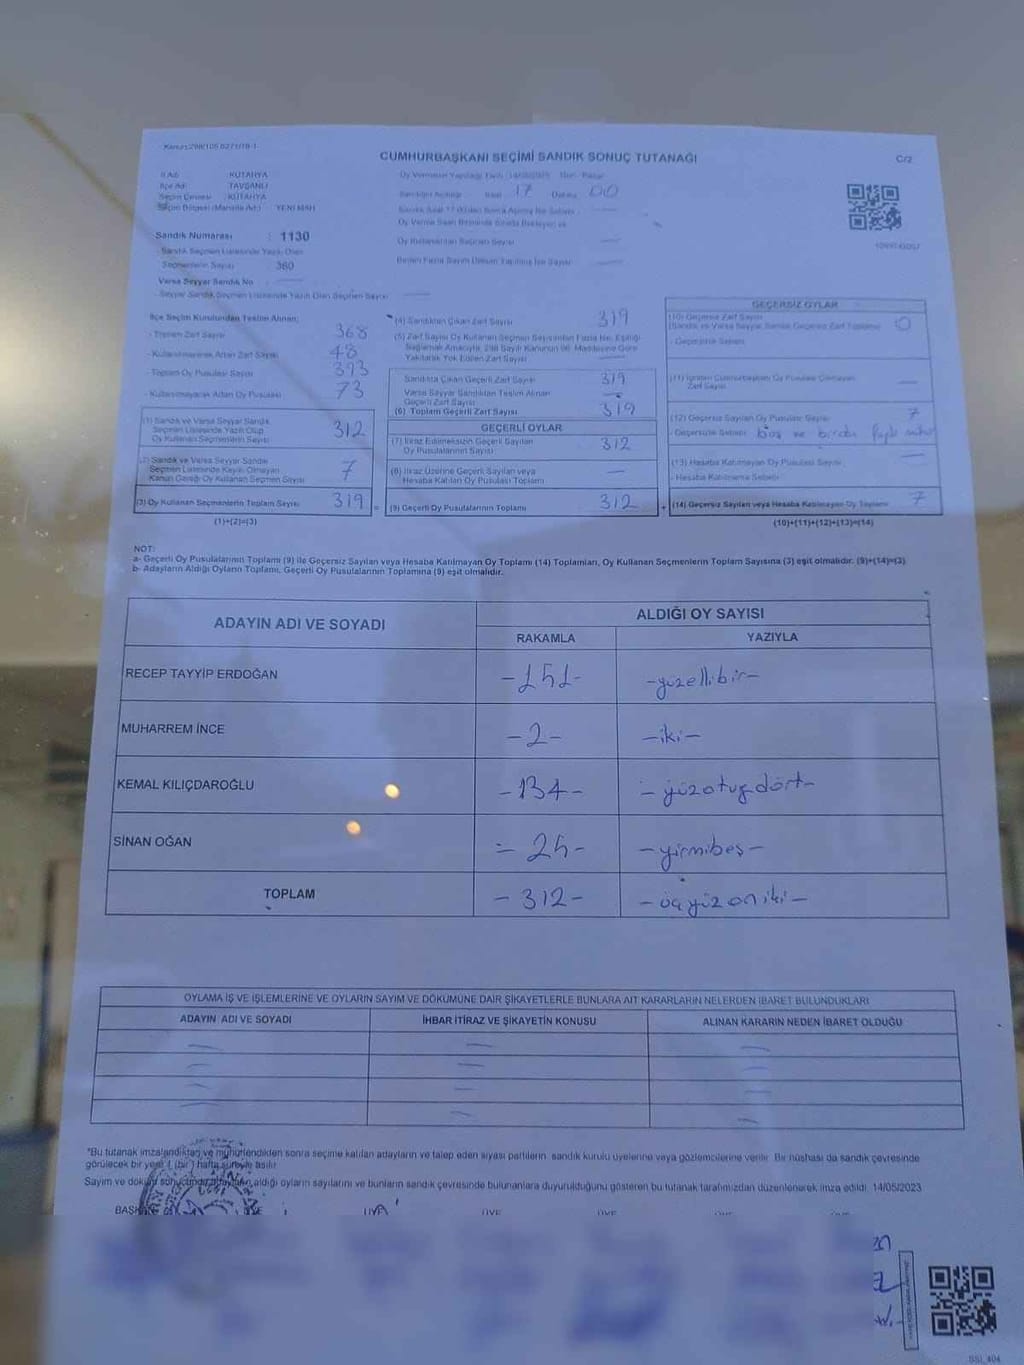 CUMHURBAŞKANI SEÇİMİ SANDIK SONUÇ TUTANAĞI
C/2
İli Adı : KÜTAHYA
İlçe Adı TAVŞANLI
Seçim Çevresi KÜTAHYA
YENİ MAH
17 00
Sandık Numarası : 1130
Sandık Seçmen Listesinde Yazılı Olan
Seçmenlerin Sayısı 360
Varsa Seyyar Sandık No
Seyyar Sandık Seçmen Listesinde Yazılı Olan Seçmen Sayısı
İlçe Seçim Kurulundan Teslim Alınan;
- Toplam Zarf Sayısı 368
- Kullanılmayarak Artan Zarf Sayısı 48
- Toplam Oy Pusulası Sayısı 393
- Kullanılmayarak Artan Oy Pusulası 73
(1) Sandık ve Varsa Seyyar Sandık
Seçmen Listesinde Yazılı Olup
Oy Kullanan Seçmenlerin Sayısı 312
(2) Sandık ve Varsa Seyyar Sandık
Seçmen Listesinde Kaydı Olmayan
Kanun Gereği Oy Kullanan Seçmen Sayısı 7
(3) Oy Kullanan Seçmenlerin Toplam Sayısı 319
(1)+(2)=(3)
(4) Sandıktan Çıkan Zarf Sayısı 319
(5) Zarf Sayısı Oy Kullanan Seçmen Sayısından Fazla İse, Eşitliği
Sağlamak Amacıyla, 298 Sayılı Kanunun 98. Maddesine Göre
Yakılarak Yok Edilen Zarf Sayısı
Sandıkta Çıkan Geçerli Zarf Sayısı 319
Varsa Seyyar Sandıktan Teslim Alınan
Geçerli Zarf Sayısı
(6) Toplam Geçerli Zarf Sayısı 319
GEÇERLİ OYLAR
(7) İtiraz Edilmeksizin Geçerli Sayılan
Oy Pusulalarının Sayısı 312
(8) İtiraz Üzerine Geçerli Sayılan veya
Hesaba Katılan Oy Pusulası Toplamı
(9) Geçerli Oy Pusulalarının Toplamı 312
GEÇERSİZ OYLAR
(10) Geçersiz Zarf Sayısı
(Sandık ve Varsa Seyyar Sandık Geçersiz Zarf Toplamı) 0
- Geçersizlik Sebebi
Zarf Sayısı
(12) Geçersiz Sayılan Oy Pusulası Sayısı 7
- Geçersizlik Sebebi boş ve birden fazla
(13) Hesaba Katılmayan Oy Pusulası Sayısı
- Hesaba Katılmama Sebebi
(14) Geçersiz Sayılan veya Hesaba Katılmayan Oy Toplamı 7
(10)+(11)+(12)+(13)=(14)
NOT:
a- Geçerli Oy Pusulalarının Toplamı (9) ile Geçersiz Sayılan veya Hesaba Katılmayan Oy Toplamı (14) Toplamları, Oy Kullanan Seçmenlerin Toplam Sayısına (3) eşit olmalıdır. (9)+(14)=(3)
b- Adayların Aldığı Oyların Toplamı, Geçerli Oy Pusulalarının Toplamına (9) eşit olmalıdır.
ADAYIN ADI VE SOYADI
ALDIĞI OY SAYISI
RAKAMLA YAZIYLA
RECEP TAYYİP ERDOĞAN -151- -yüzellibir-
MUHARREM İNCE -2- -iki-
KEMAL KILIÇDAROĞLU -134- -yüzotuzdört-
SİNAN OĞAN -25- -yirmibeş-
TOPLAM -312- -üçyüzoniki-
OYLAMA İŞ VE İŞLEMLERİNE VE OYLARIN SAYIM VE DÖKÜMÜNE DAİR ŞİKAYETLERLE BUNLARA AİT KARARLARIN NELERDEN İBARET BULUNDUKLARI
ADAYIN ADI VE SOYADI İHBAR İTİRAZ VE ŞİKAYETİN KONUSU ALINAN KARARIN NEDEN İBARET OLDUĞU
*Bu tutanak imzalandıktan ve mühürlendikden sonra seçime katılan adayların ve talep eden siyasi partilerin sandık kurulu üyelerine veya gözlemcilerine verilir. Bir nüshası da sandık çevresinde
görülecek bir yere 1 (bir) hafta süreyle asılır.
Sayım ve döküm sonucunda adayların aldığı oyların sayılarını ve bunların sandık çevresinde bulunanlara duyurulduğunu gösteren bu tutanak tarafımızdan düzenlenerek imza edildi. 14/05/2023
ÜYE ÜYE ÜYE ÜYE